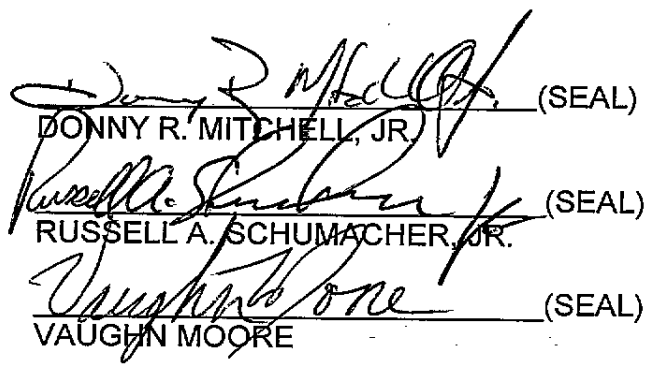 Donny R Mitchell Jr. (SEAL)
DONNY R. MITCHELL, JR.
Russell A. Schumacher Jr (SEAL)
RUSSELL A. SCHUMACHER, JR.
Vaughn Moore (SEAL)
VAUGHN MOORE